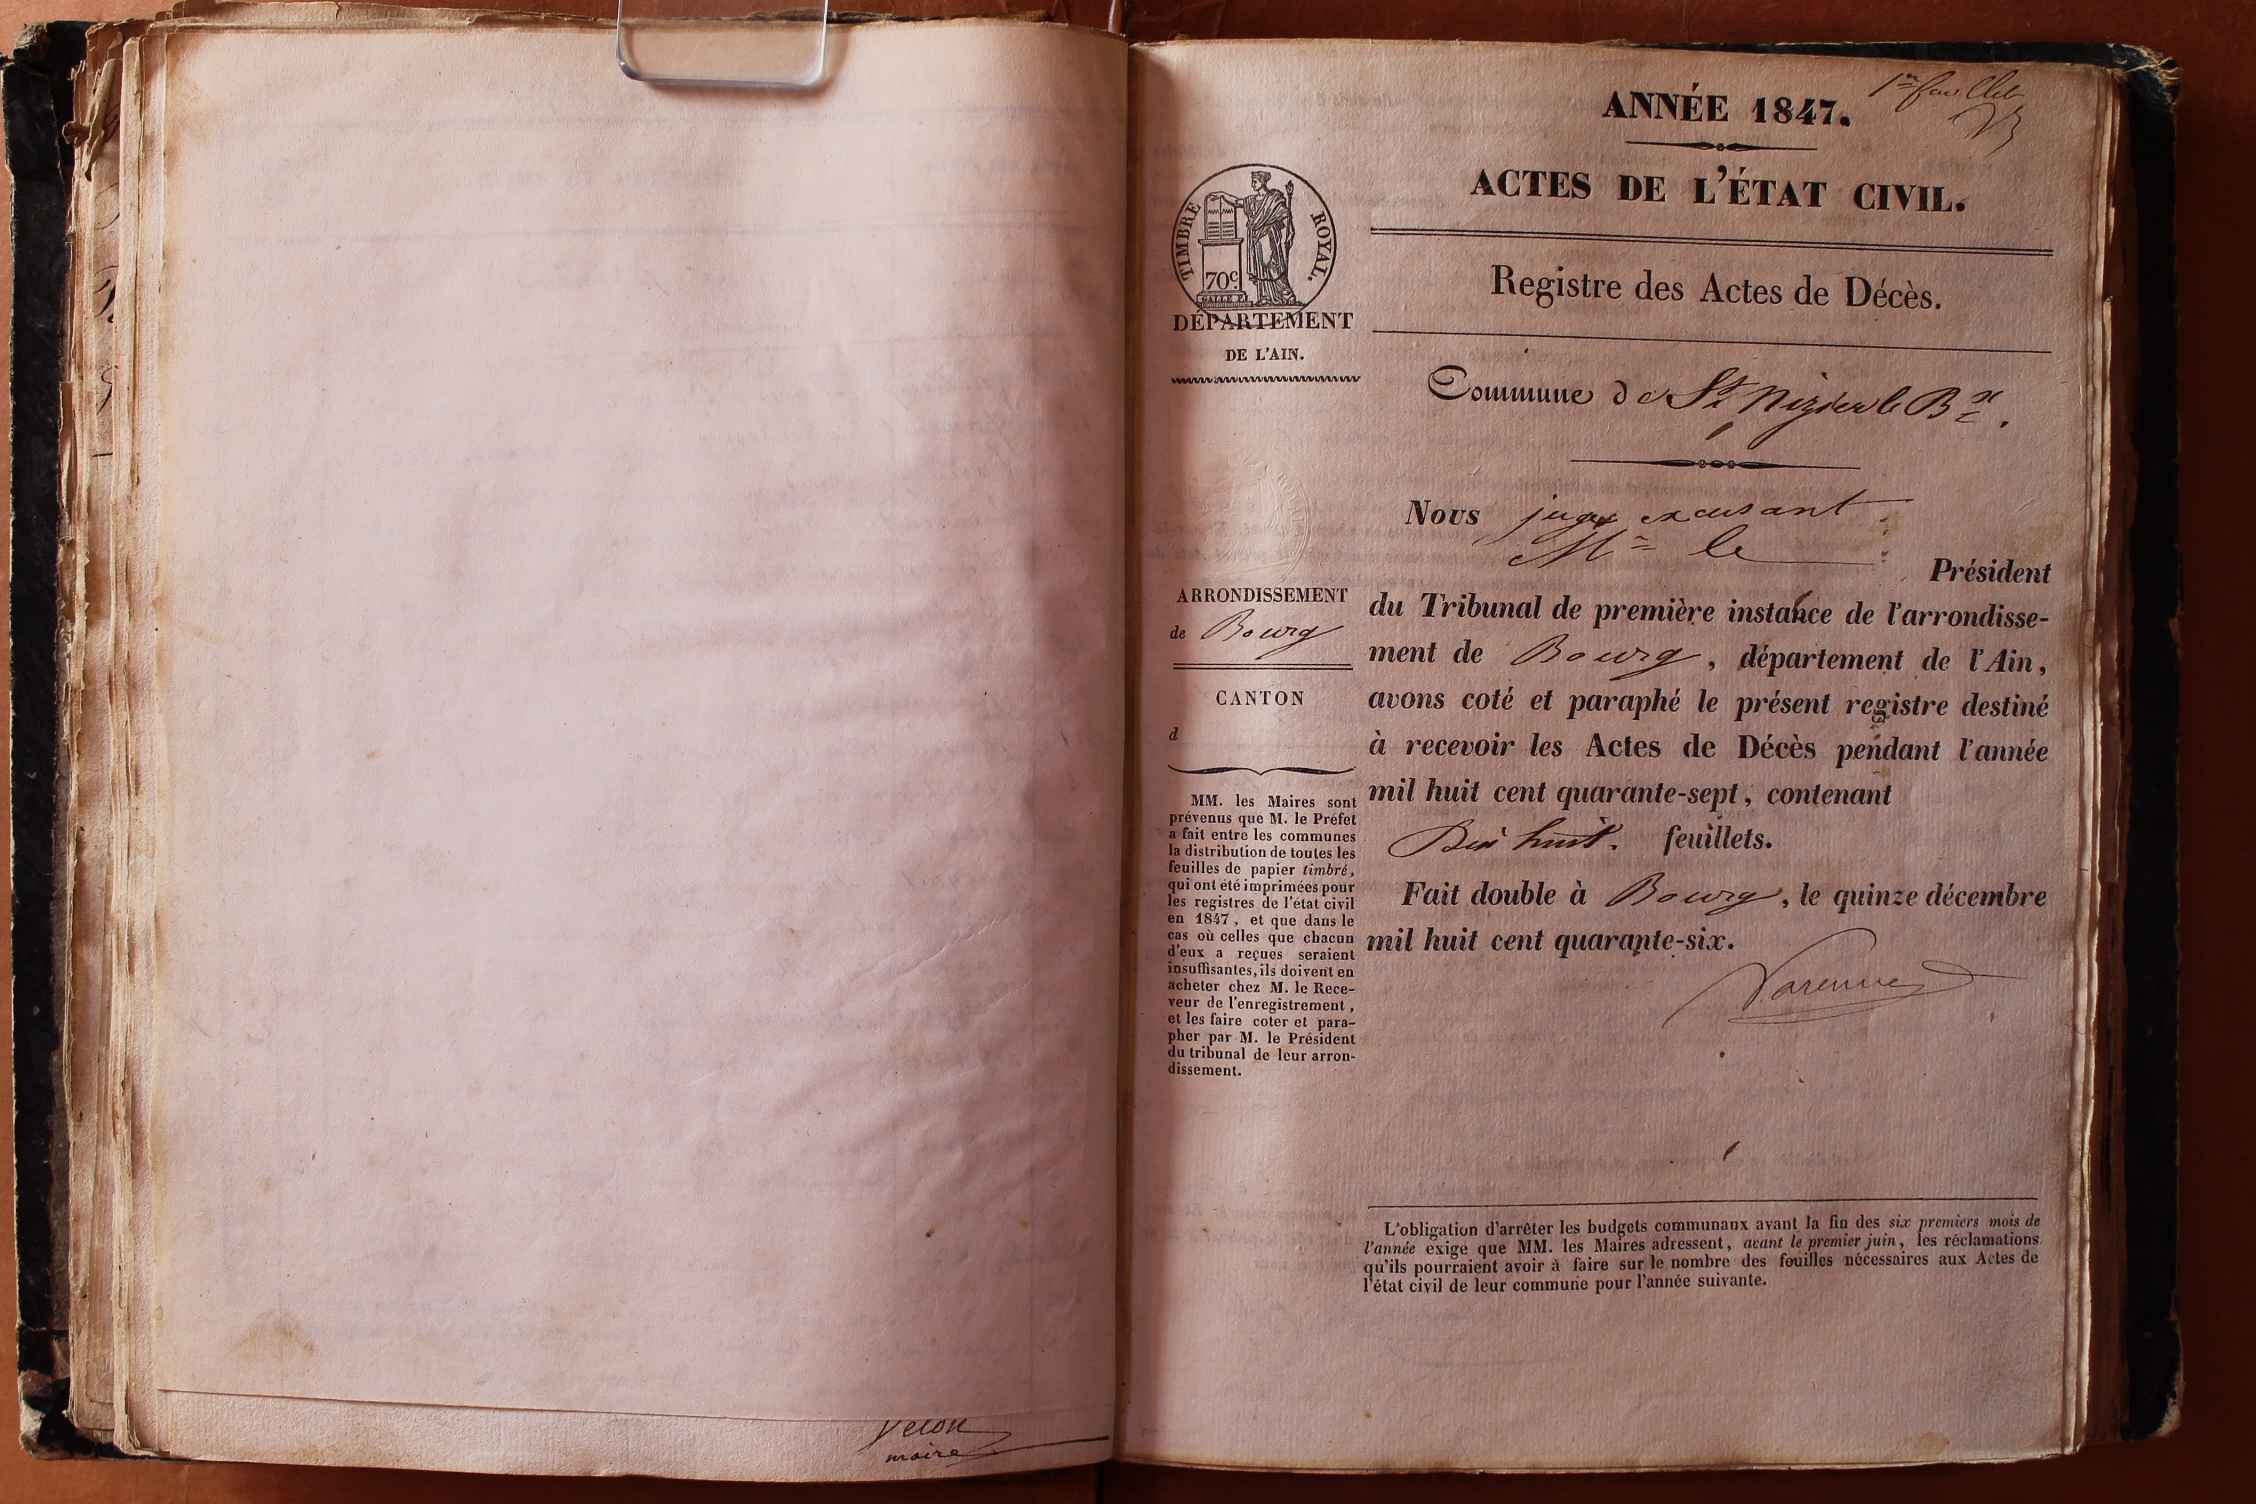 Velon
maire
1er feuillet
ANNÉE 1847.
ACTES DE L'ÉTAT CIVIL.
TIMBRE ROYAL.
70c
DÉPARTEMENT
DE L'AIN.
Registre des Actes de Décès.
Commune de St Nizier le Bx.
Nous juge excusant
Mr le
Président
ARRONDISSEMENT
de Bourg
CANTON
d
du Tribunal de première instance de l'arrondisse-
ment de Bourg, département de l'Ain,
avons coté et paraphé le présent registre destiné
à recevoir les Actes de Décès pendant l'année
mil huit cent quarante-sept, contenant
Dix huit. feuillets.
Fait double à Bourg, le quinze décembre
mil huit cent quarante-six.
Varenne
MM. les Maires sont
prévenus que M. le Préfet
a fait entre les communes
la distribution de toutes les
feuilles de papier timbré,
qui ont été imprimées pour
les registres de l'état civil
en 1847, et que dans le
cas où celles que chacun
d'eux a reçues seraient
insuffisantes, ils doivent en
acheter chez M. le Rece-
veur de l'enregistrement,
et les faire coter et para-
pher par M. le Président
du tribunal de leur arron-
dissement.
L'obligation d'arrêter les budgets communaux avant la fin des six premiers mois de
l'année exige que MM. les Maires adressent, avant le premier juin, les réclamations
qu'ils pourraient avoir à faire sur le nombre des feuilles nécessaires aux Actes de
l'état civil de leur commune pour l'année suivante.